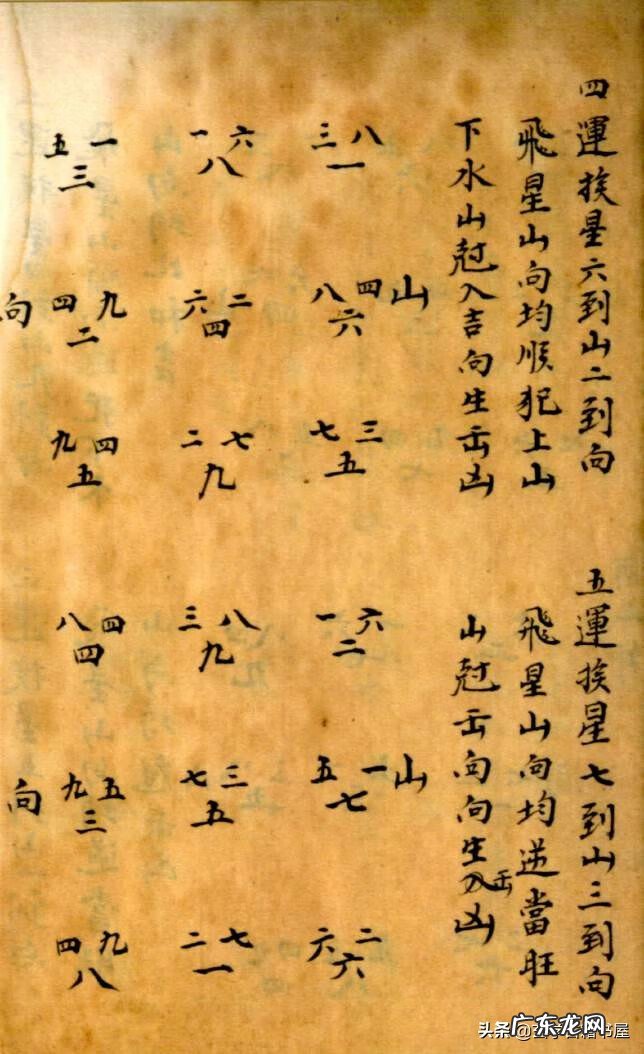 四運挨星六到山二到向
飛星山向均順犯上山
下水山尅入吉向生出凶
八三
一
山
四八
六
三七
五
六一
八
二六
四
七二
九
一五
三
九四
二
向
四九
五
五運挨星七到山三到向
飛星山向均逆當旺
山尅出向向生入出凶
六一
二
山
一五
七
二六
六
八三
九
三七
五
七二
一
四八
四
五九
三
向
九四
八
头条
书屋
广东龙网